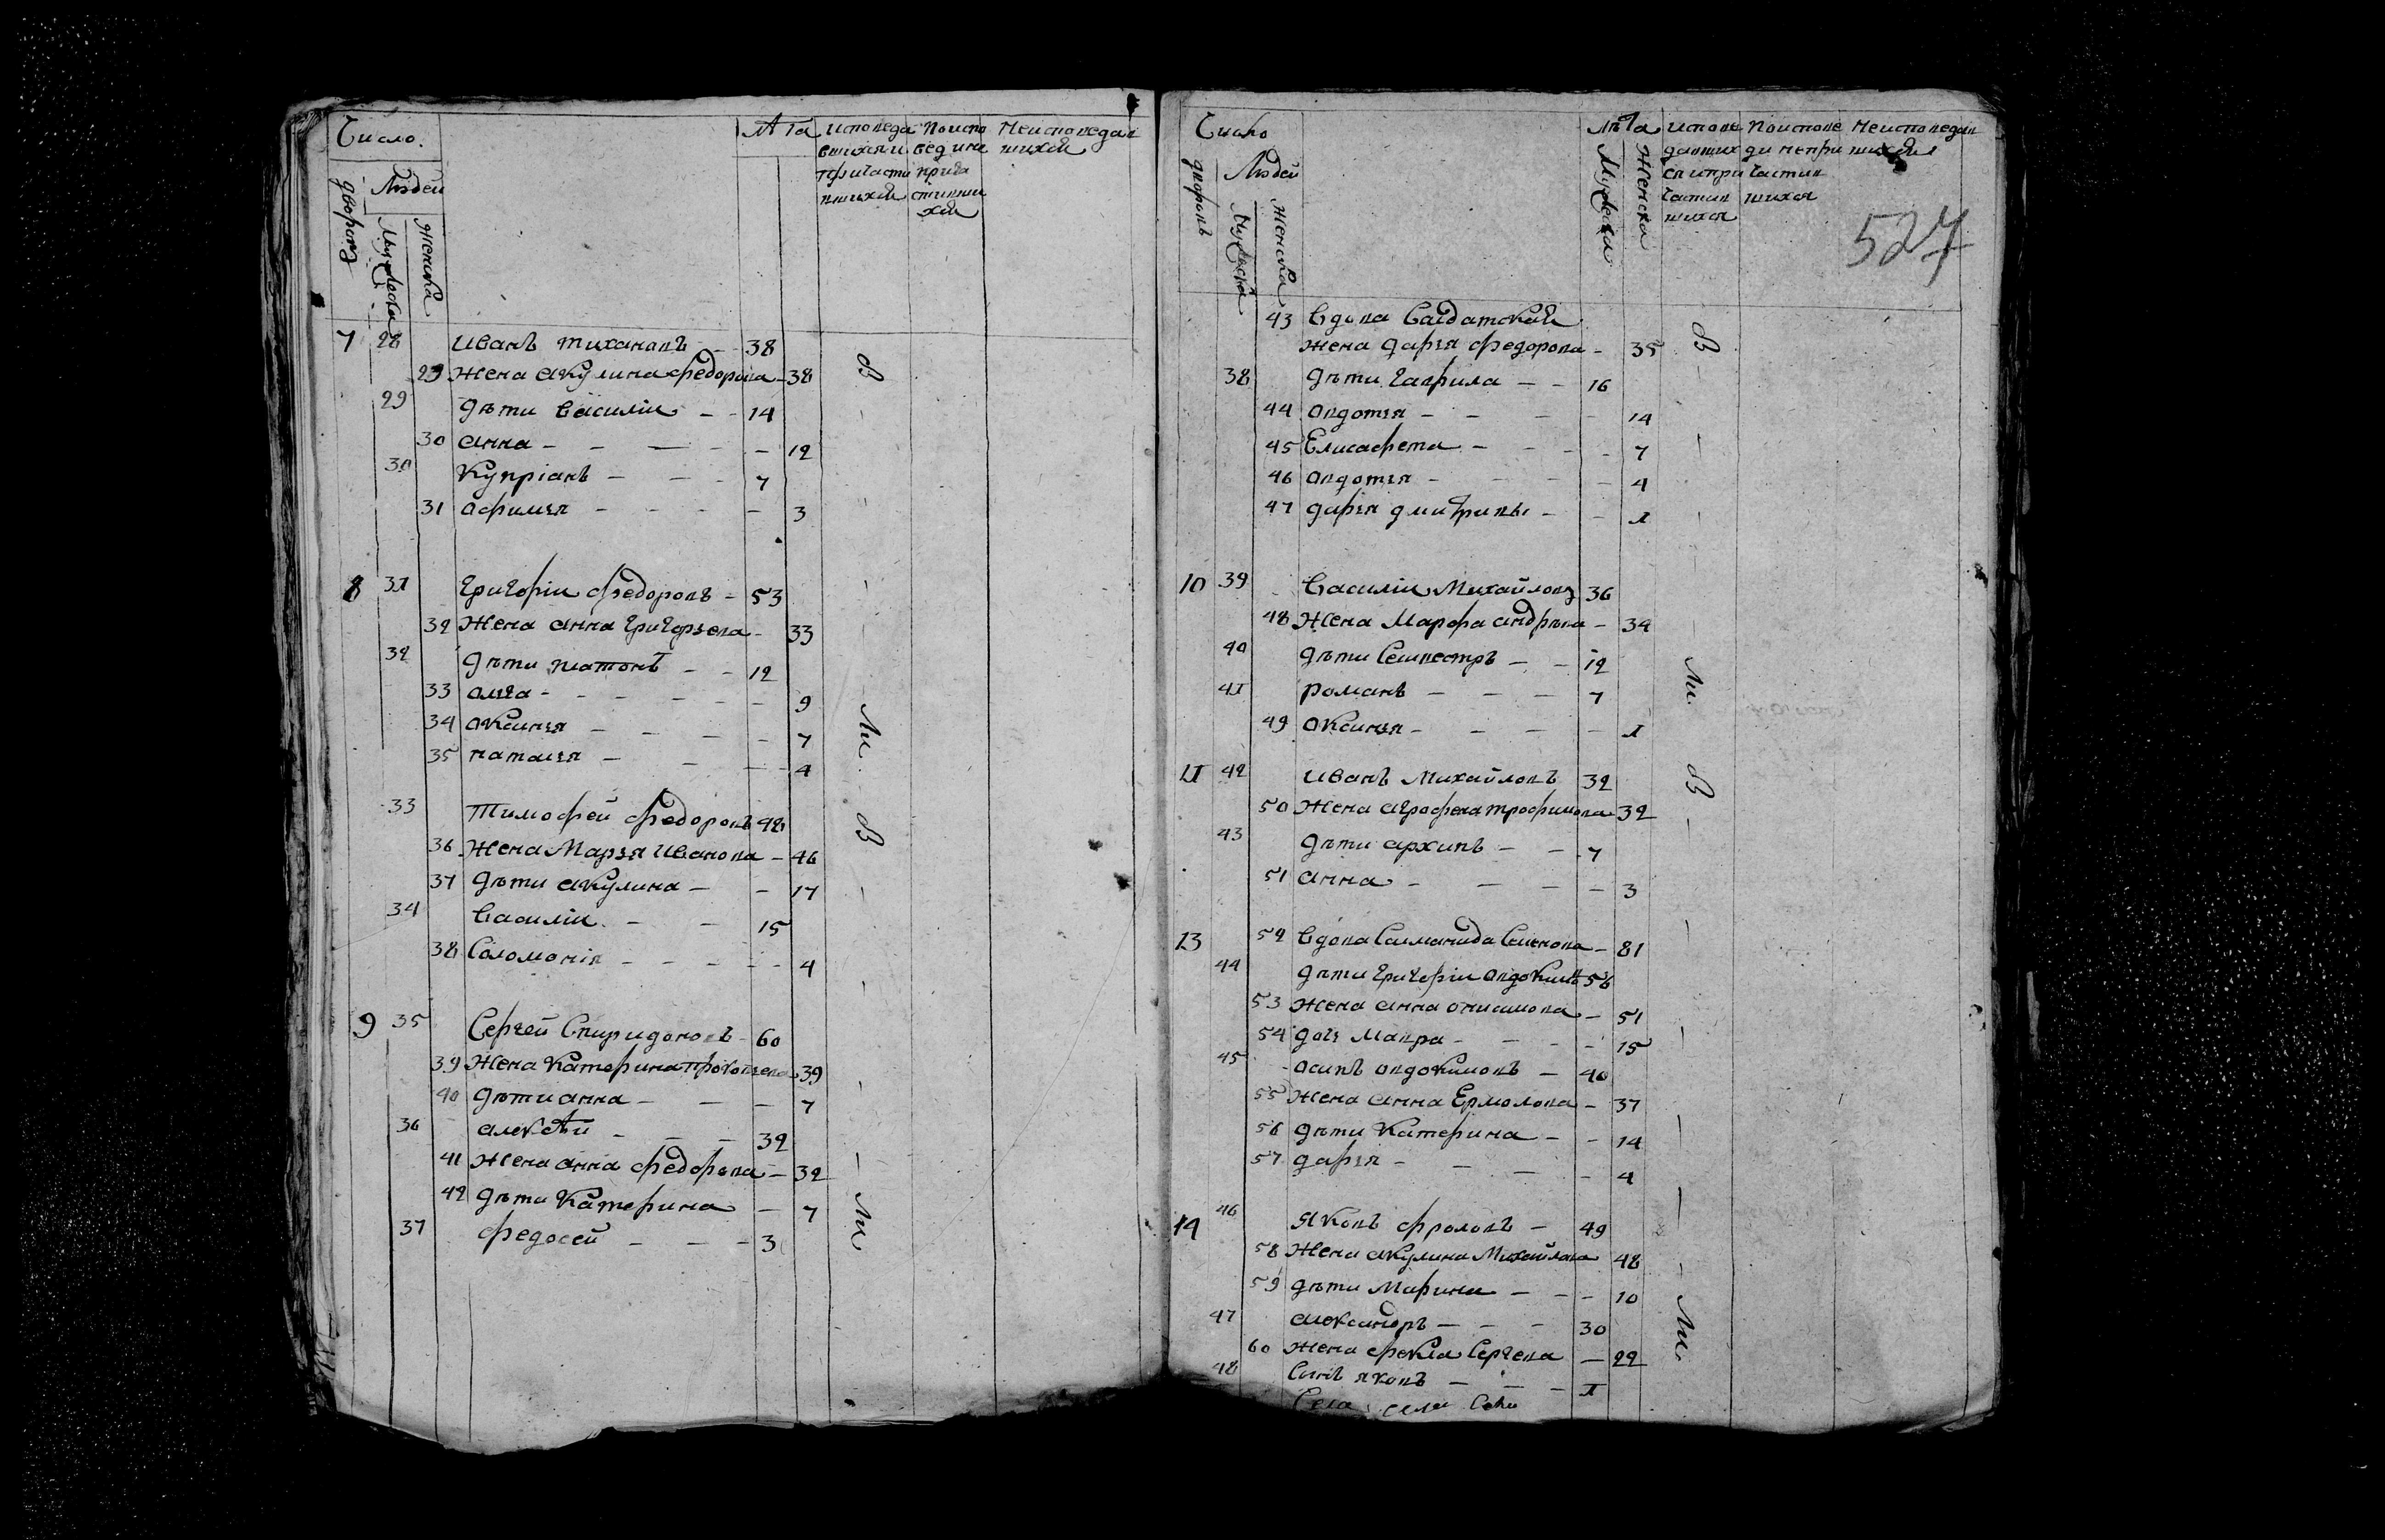 Число.
Людей
дворовъ
Мужеска
Женска
Лѣта
исповеда
вшихся и
причасти
вшихся
Поиспо
ведине
прича
стивши
хся
Неисповедав
шихся
7 28 Иванъ Тихановъ - 38
29 Жена Акулина Федорова - 38
29 Дѣти Василіи - - 14
30 Анна - - - - 12
30 Купріанъ - - - 7
31 Офимья - - - - 3
8 31 Григоріи Федоровъ - 53
32 Жена Анна Григорьева - 33
32 Дѣти Платонъ - - 12
33 Олга - - - - - 9
34 Оксинья - - - - 7
35 Наталья - - - 4
33 Тимофей Федоровъ 48
36 Жена Марья Иванова - 46
37 Дѣти Акулина - - 17
34 Василіи - - 15
38 Соломонія - - - - 4
9 35 Сергей Спиридоновъ - 60
39 Жена Катерина Прокопьева 39
40 Дѣти Анна - - - 7
36 Алексѣи - - - 32
41 Жена Анна Федорова - 32
42 Дѣти Катерина - 7
37 Федосей - - - 3
В
Ли
В
Ли
Число
Людей
дворовъ
Мужеска
Женска
Лѣта
Мужеска
Женска
исповѣ
давших
ся и при
частив
шихся
Поиспове
ди непри
частив
шихся
Неисповедав
шихся
527
43 Вдова Салдатская
жена Дарья Федорова - 35
38 Дѣти Гаврила - - 16
44 Овдотья - - - - 14
45 Елисафета - - - - 7
46 Овдотья - - - - 4
47 Дарья Дмитривы - - 1
10 39 Василіи Михайловъ 36
48 Жена Марфа Андрѣева - 34
40 Дѣти Селивестръ - - 12
41 Романъ - - - 7
49 Оксинья - - - - 1
11 42 Иванъ Михайловъ 32
50 Жена Агрофена Трофимова 32
43 Дѣти Архипъ - - 7
51 Анна - - - - 3
13 52 Вдова Саламанида Семенова - 81
44 Дѣти Григоріи Овдокимовъ 56
53 Жена Анна Онисимова - 51
54 дочь Мавра - - - - 15
45 Осипъ Овдокимовъ - 40
55 Жена Анна Ермолова - 37
56 Дѣти Катерина - - 14
57 Дарья - - - - 4
14 46 Яковъ Фроловъ - 49
58 Жена Акулина Михайлова 48
59 Дѣти Марина - - - 10
47 Александръ - - - 30
60 Жена Фекла Сергева - 22
48 Сынъ Яковъ - - - 1
В
Ли
В
Ли